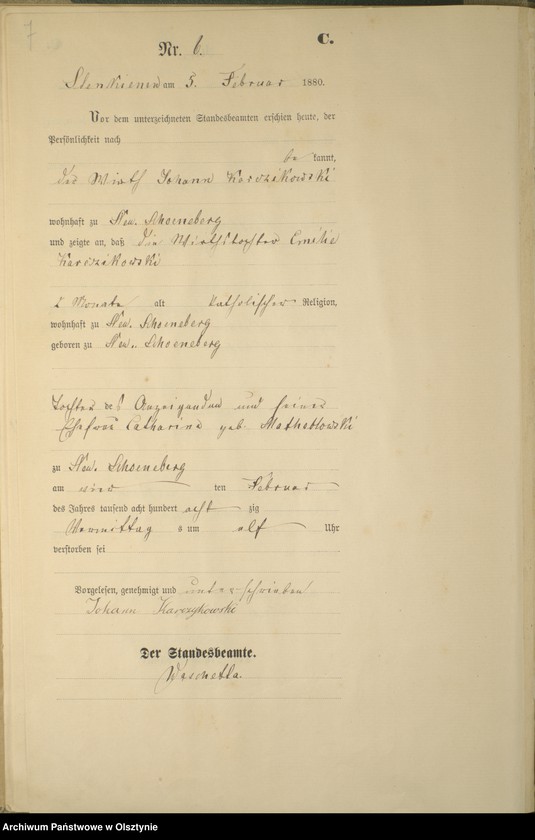 7
C.
Nr. 6.
am 5. Februar 1880.
Vor dem unterzeichneten Standesbeamten erschien heute, der
Persönlichkeit nach
be kannt,
der Wirth Johann Karczikowski
wohnhaft zu Neu. Schoeneberg
und zeigte an, daß die Wirthstochter Emilie
Karczikowski
2 Monate alt katholischer Religion,
wohnhaft zu Neu. Schoeneberg
geboren zu Neu. Schoeneberg
Tochter des Anzeigenden und seiner
Ehefrau Catharina geb.
zu Neu. Schoeneberg
am vier ten Februar
des Jahres tausend acht hundert acht zig
Vormittag s um elf Uhr
verstorben sei
Vorgelesen, genehmigt und unterschrieben
Johann Karczykowski
Der Standesbeamte.
Archiwum Państwowe w Olsztynie